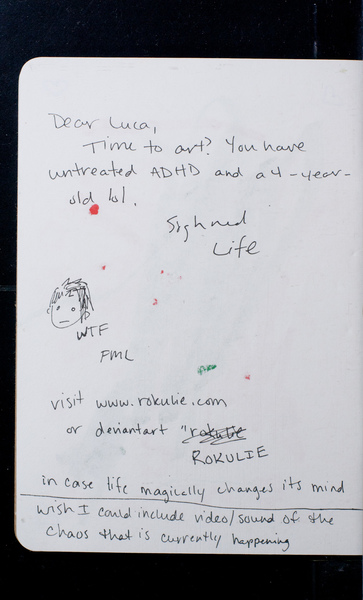 Dear Luca,
Time to art? You have
untreated ADHD and a 4-year-
old lol.
Sighned
Life
WTF
FML
visit www.rokulie.com
or deviantart "rokulie
ROKULIE
in case life magically changes its mind
wish I could include video/sound of the
chaos that is currently happening